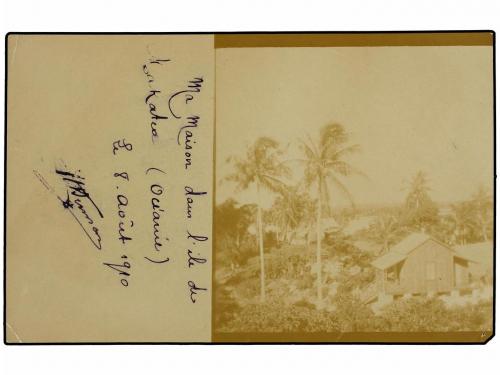 Ma Maison dans l'île de
Makatea (Océanie)
Le 8. Août 1910